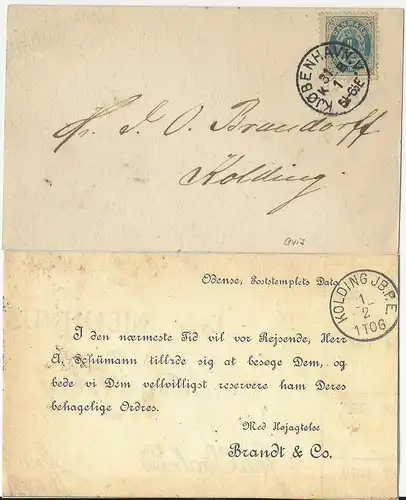 DANMARK
KJØBENHAVN. V.
K. 31 8
1
5½-6½E.
Hr. J. O. Brandorff
Kolding.
avis
Odense, Poststemplets Dato.
KOLDING JB.P.E
1/2
1 TOG
I den nærmeste Tid vil vor Rejsende, Herr
A. Schümann tillade sig at besøge Dem, og
bede vi Dem velvilligst reservere ham Deres
behagelige Ordres.
Med Højagtelse
Brandt & Co.